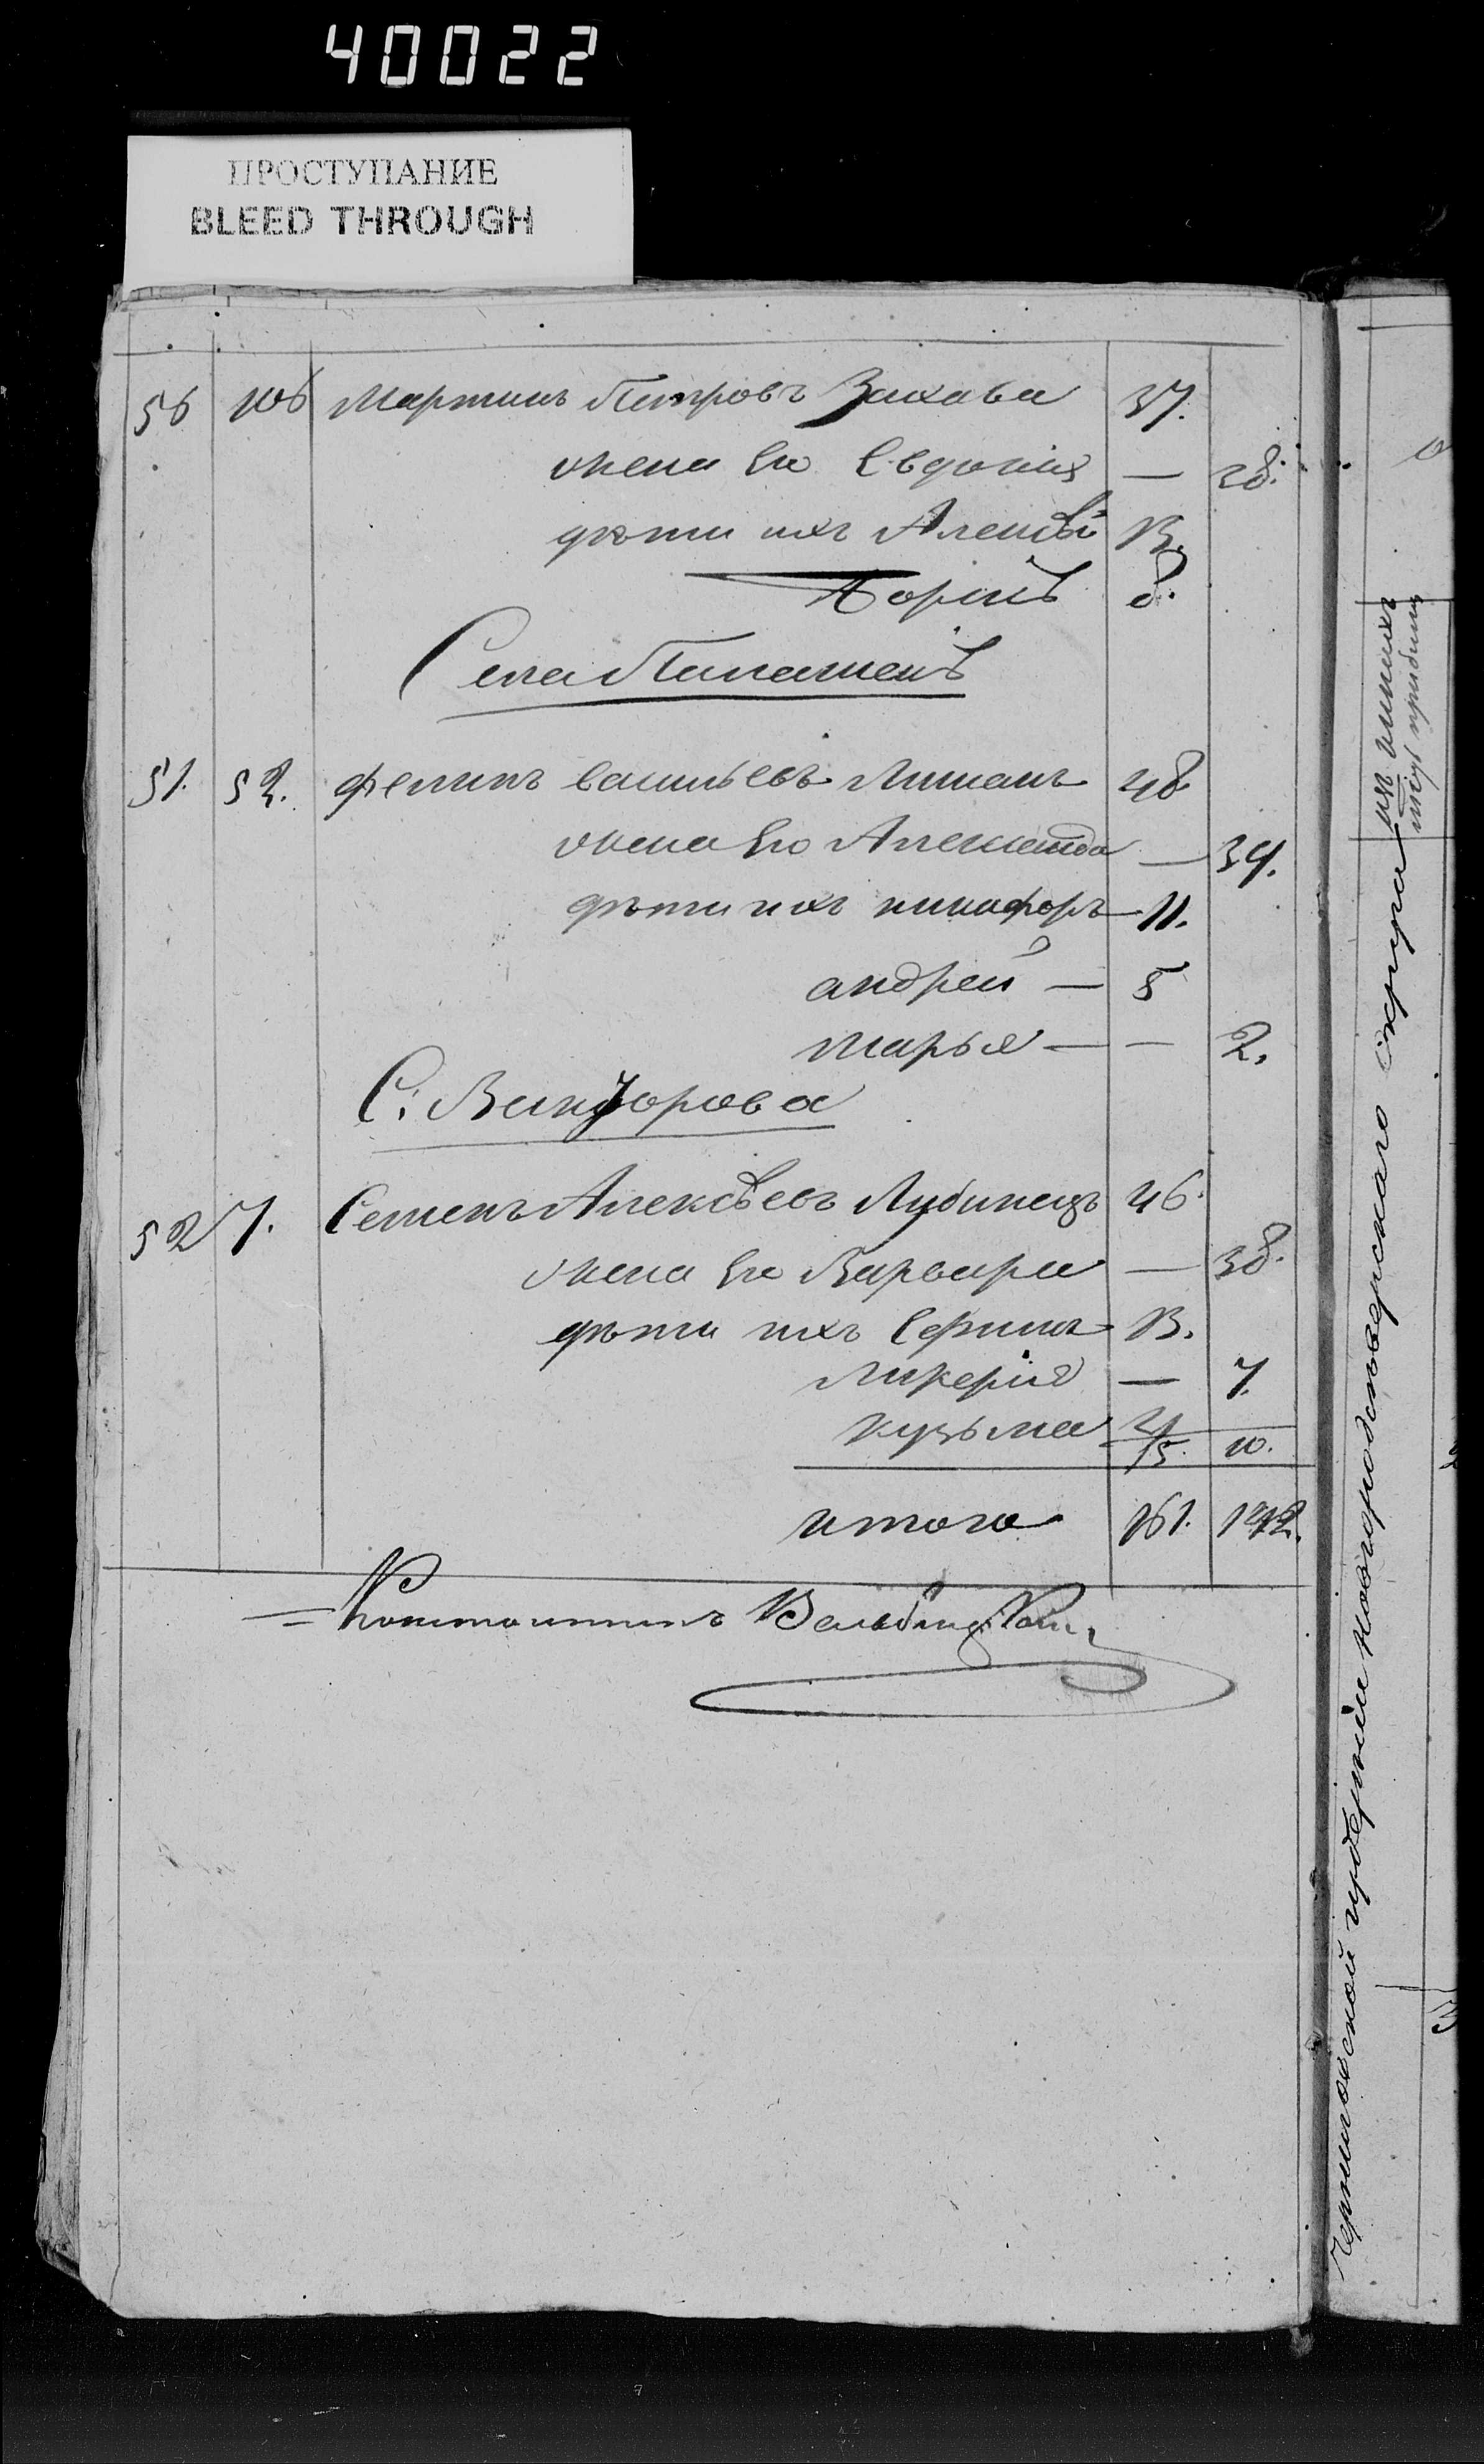 40022
ПРОСТУПАНИЕ
BLEED THROUGH
56 106 Мартинъ Петровъ Закава 37.
жена его Евдокия — 28.
дѣти ихъ Алексѣй 13.
Борисъ 8.
Села
51. 52. Филипъ васильевъ Лишанъ 48
жена его Александа — 39.
дѣти ихъ никифоръ — 11.
андрей — 5
марья — — 2.
С:
52 7. Семенъ Алексѣевъ Лубинецъ 46.
жена его Варвара — 38.
дѣти ихъ 13.
Лукерия — 7.
кузьма
15. 10.
итого 161. 142.
Черниговской губерніи Новгородсѣверскаго округа